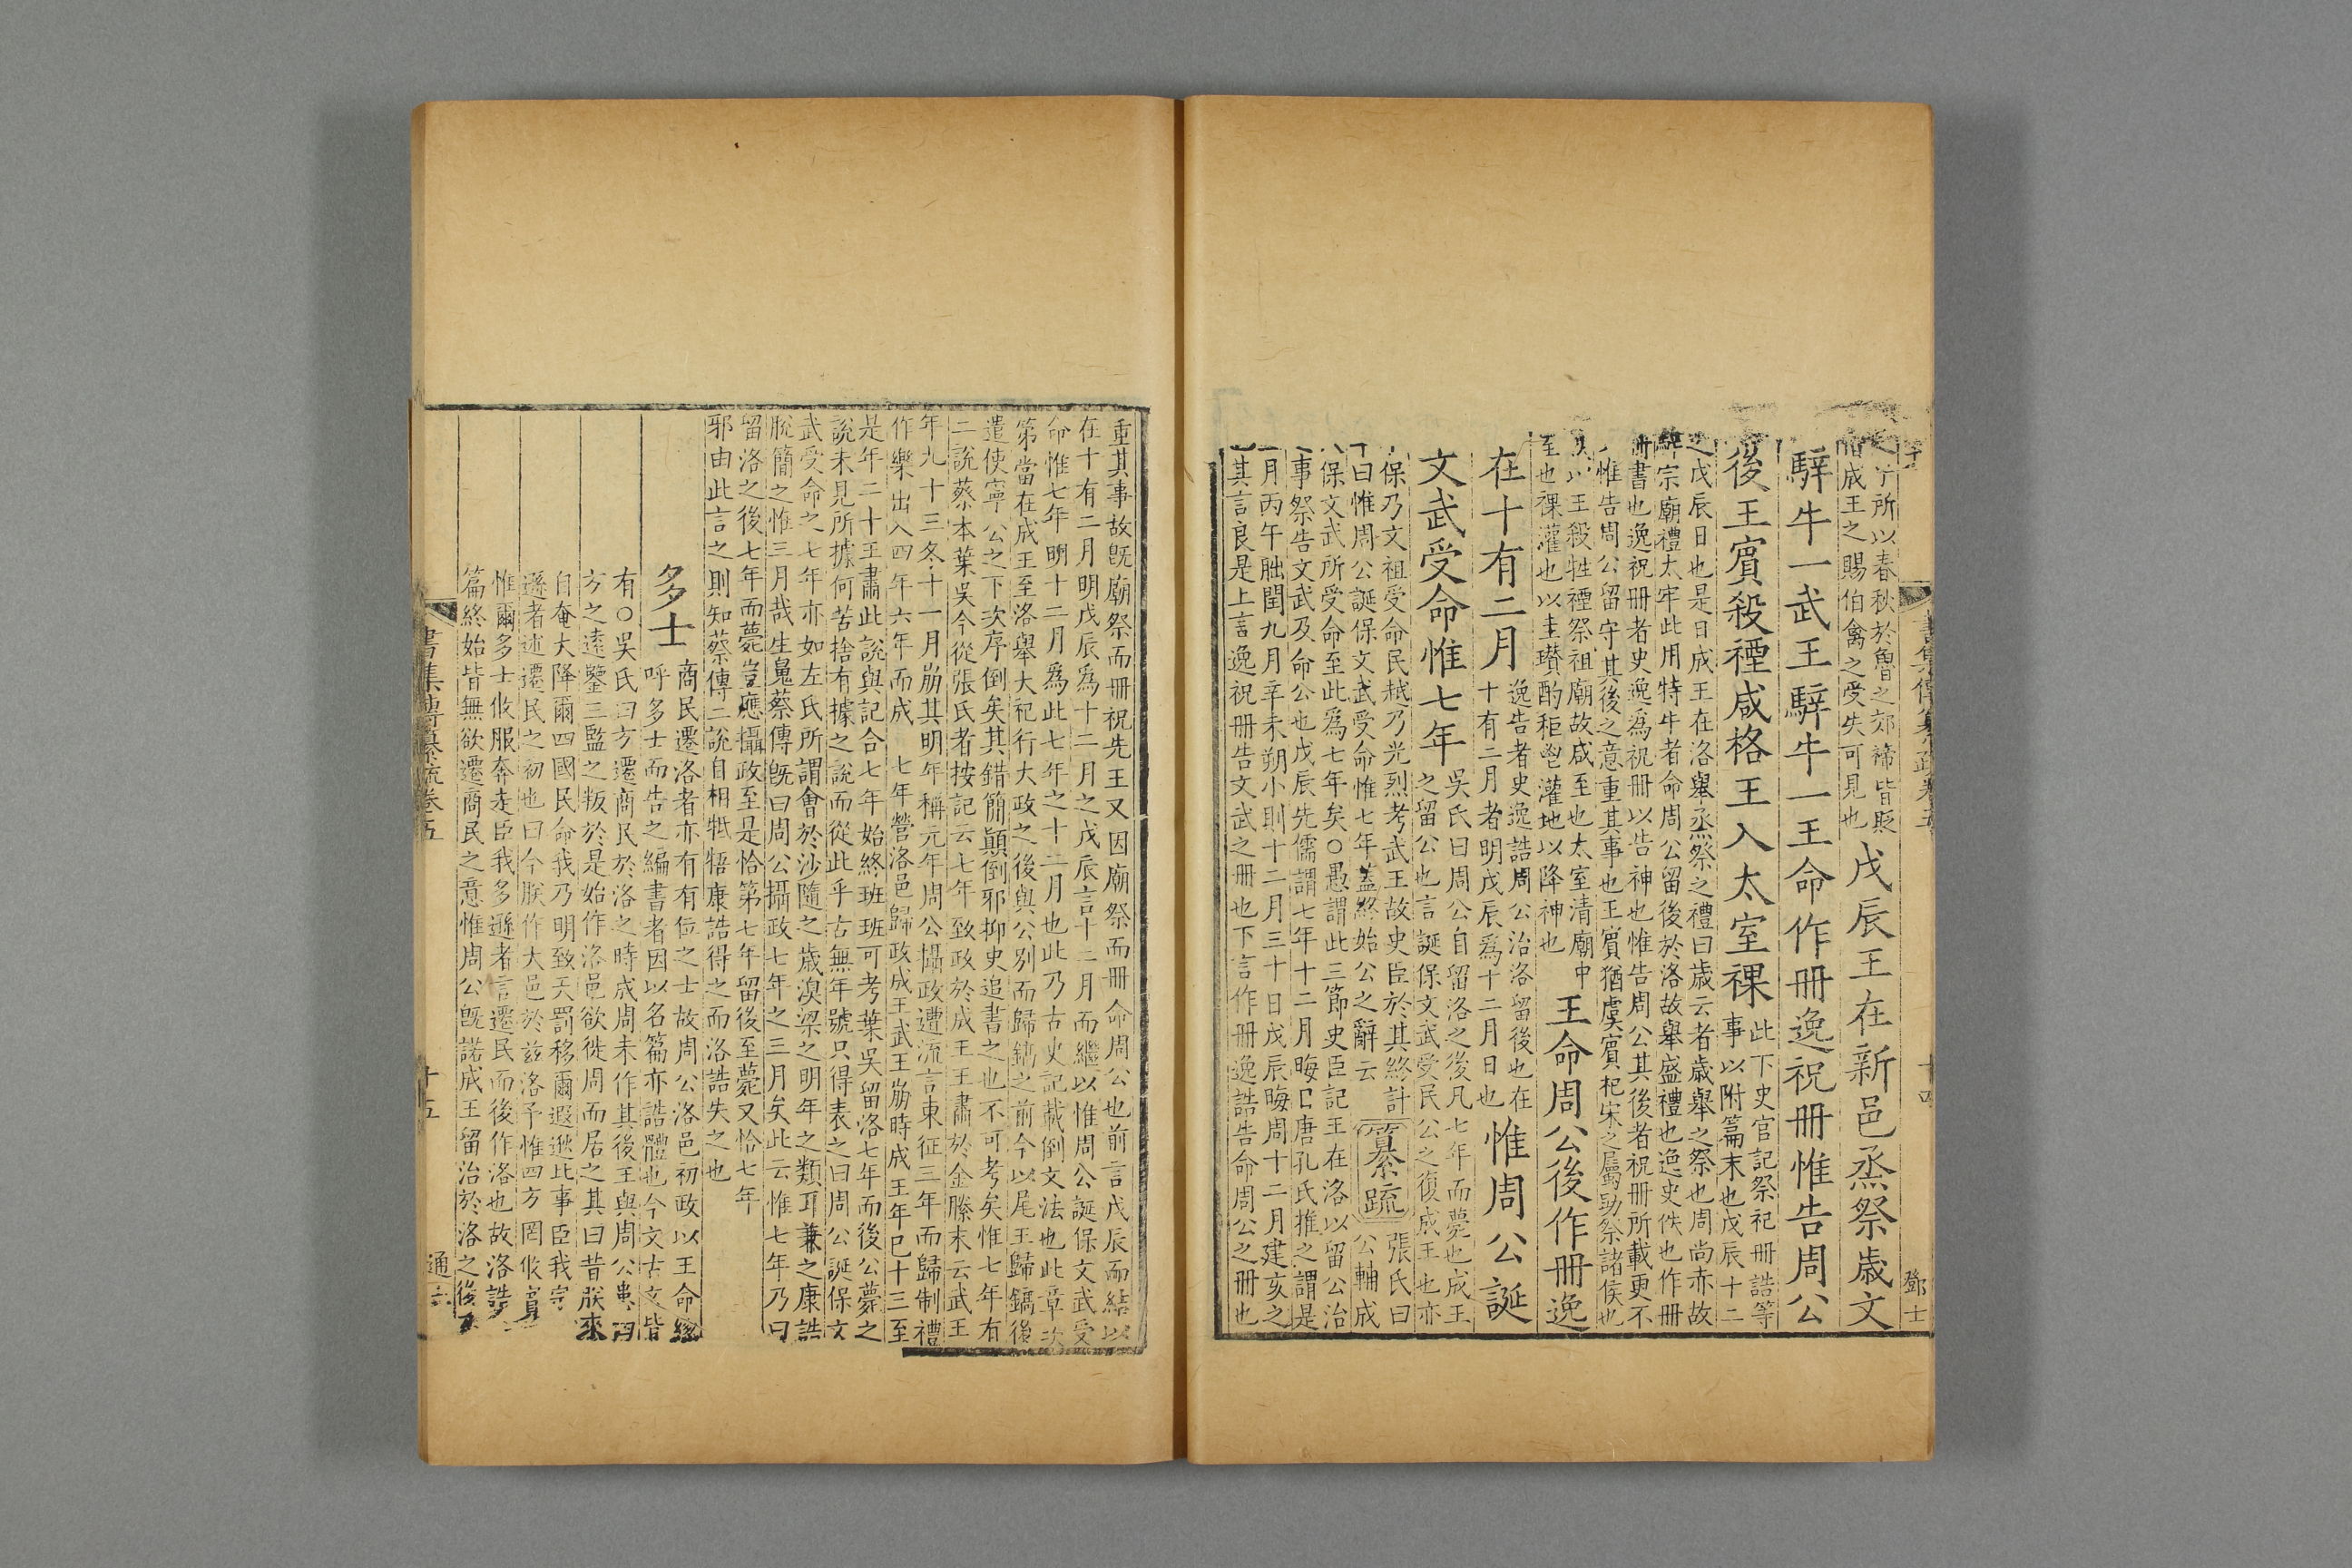 書集傳纂疏卷五 十四 鄧士
所以春秋於魯之郊禘皆貶
成王之賜伯禽之受失可見也
戊辰王在新邑烝祭歲文
騂牛一武王騂牛一王命作冊逸祝冊惟告周公
後王賓殺禋咸格王入太室祼
此下史官記祭祀冊誥等
事以附篇末也戊辰十二
之戊辰日也是日成王在洛舉烝祭之禮曰歲云者歲舉之祭也周尚赤故
宗廟禮太牢此用特牛者命周公留後於洛故舉盛禮也逸史佚也作冊
冊書也逸祝冊者史逸爲祝冊以告神也惟告周公其後者祝冊所載更不
惟告周公留守其後之意重其事也王賓猶虞賓杞宋之屬助祭諸侯也
以王殺牲禋祭祖廟故咸至也太室清廟中
至也祼灌也以圭瓚酌秬鬯灌地以降神也
王命周公後作冊逸
在十有二月
逸告者史逸誥周公治洛留後也在
十有二月者明戊辰爲十二月日也
惟周公誕
文武受命惟七年
吳氏曰周公自留洛之後凡七年而薨也成王
之留公也言誕保文武受民公之復成王也亦
保乃文祖受命民越乃光烈考武王故史臣於其終計
曰惟周公誕保文武受命惟七年蓋終始公之辭云
纂疏
張氏曰
公輔成
保文武所受命至此爲七年矣○愚謂此三節史臣記王在洛以留公治
事祭告文武及命公也戊辰先儒謂七年十二月晦日唐孔氏推之謂是
月丙午朏閏九月辛未朔小則十二月三十日戊辰晦周十二月建亥之
其言良是上言逸祝冊告文武之冊也下言作冊逸誥告命周公之冊也
重其事故旣廟祭而冊祝先王又因廟祭而冊命周公也前言戊辰而結以
在十有二月明戊辰爲十二月之戊辰言十二月而繼以惟周公誕保文武受
命惟七年明十二月爲此七年之十二月也此乃古史記載倒文法也此章次
第當在成王至洛舉大祀行大政之後與公別而歸鎬之前今以尾王歸鎬後
遣使寧公之下次序倒矣其錯簡顚倒邪抑史追書之也不可考矣惟七年有
二說蔡本葉吳今從張氏者按記云七年致政於成王王肅於金縢末云武王
年九十三冬十一月崩其明年稱元年周公攝政遭流言東征三年而歸制禮
作樂出入四年六年而成 七年營洛邑歸政成王武王崩時成王年已十三至
是年二十王肅此說與記合七年始終班班可考葉吳留洛七年而後公薨之
說未見所據何苦捨有據之說而從此乎古無年號只得表之曰周公誕保文
武受命之七年亦如左氏所謂會於沙隨之歲溴梁之明年之類耳兼之康誥
脫簡之惟三月哉生魄蔡傳旣曰周公攝政七年之三月矣此云惟七年乃曰
留洛之後七年而薨豈應攝政至是恰第七年留後至薨又恰七年
邪由此言之則知蔡傳二說自相牴牾康誥得之而洛誥失之也
多士
商民遷洛者亦有有位之士故周公洛邑初政以王命總
呼多士而告之編書者因以名篇亦誥體也今文古文皆
有○吳氏曰方遷商民於洛之時成周未作其後王與周公患四
方之遠鑒三監之叛於是始作洛邑欲徙周而居之其曰昔朕來
自奄大降爾四國民命我乃明致天罰移爾遐逖比事臣我宗
遜者述遷民之初也曰今朕作大邑於兹洛予惟四方罔攸賓
惟爾多士攸服奔走臣我多遜者言遷民而後作洛也故洛誥
篇終始皆無欲遷商民之意惟周公旣諾成王留治於洛之後
書集傳纂疏卷五 十五